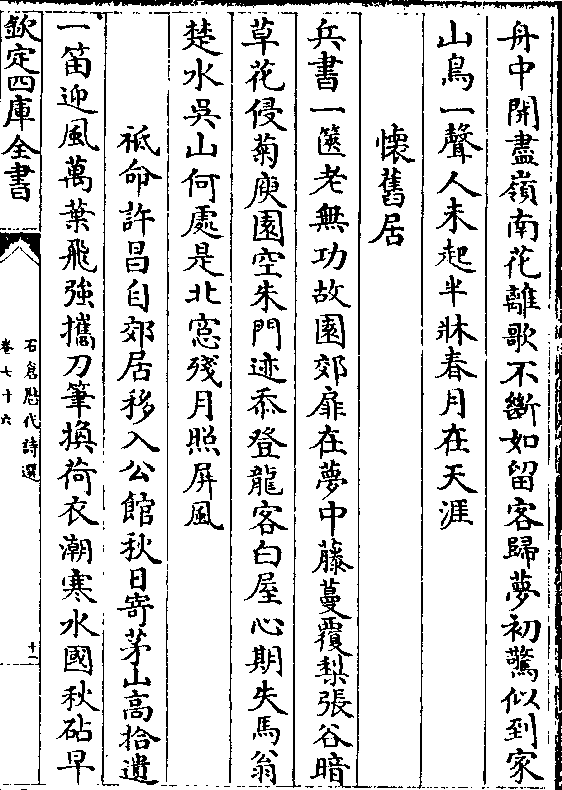 舟中開盡嶺南花離歌不斷如留客歸夢初驚似到家
山鳥一聲人未起半牀春月在天涯
懷舊居
兵書一篋老無功故園郊扉在夢中藤蔓覆梨張谷暗
草花侵菊庾園空朱門迹忝登龍客白屋心期失馬翁
楚水吳山何處是北窻殘月照屏風
祗命許昌自郊居移入公館秋日寄茅山高拾遺
一笛迎風萬葉飛強攜刀筆換荷衣潮寒水國秋砧早
欽定四庫全書
石倉歷代詩選
卷七十六
十一